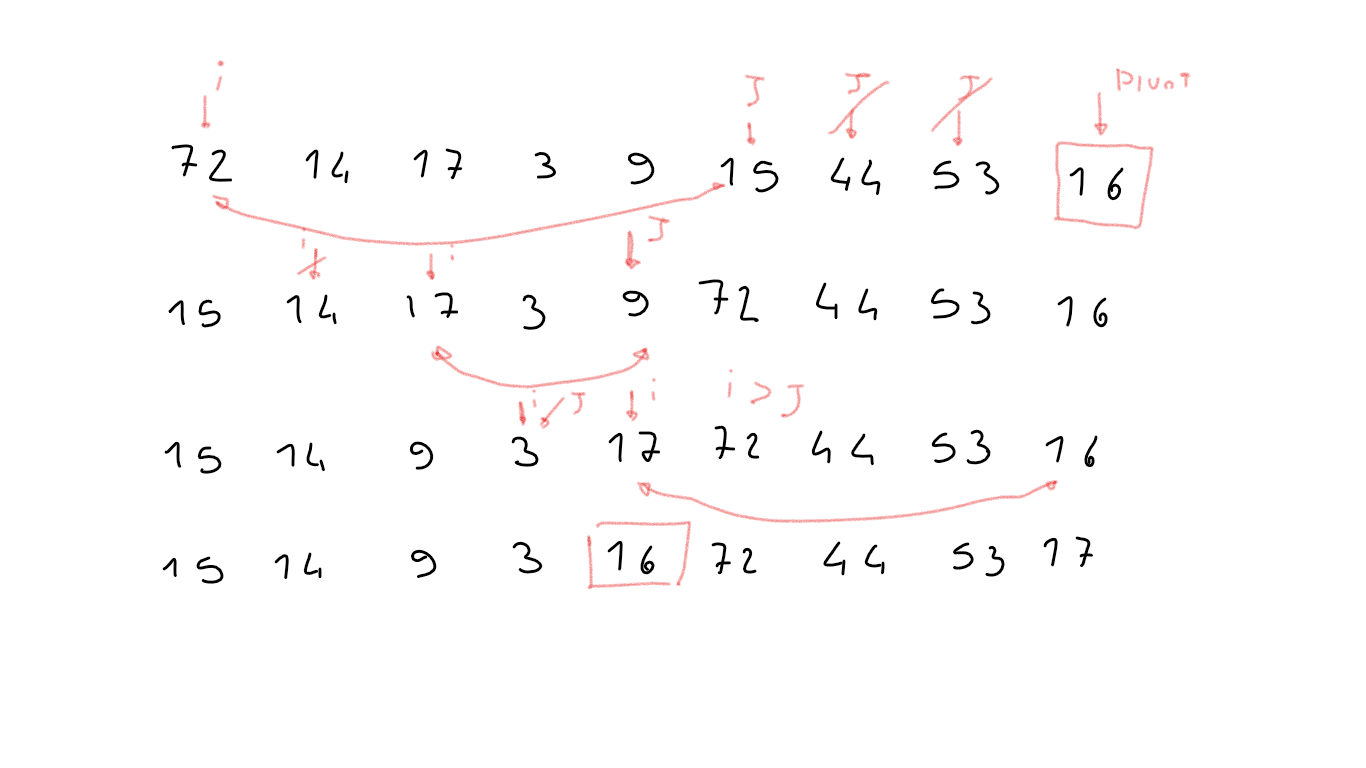 i J J J PIVOT
72 14 17 3 9 15 44 53 16
i i J
15 14 17 3 9 72 44 53 16
i J i i > J
15 14 9 3 17 72 44 53 16
15 14 9 3 16 72 44 53 17